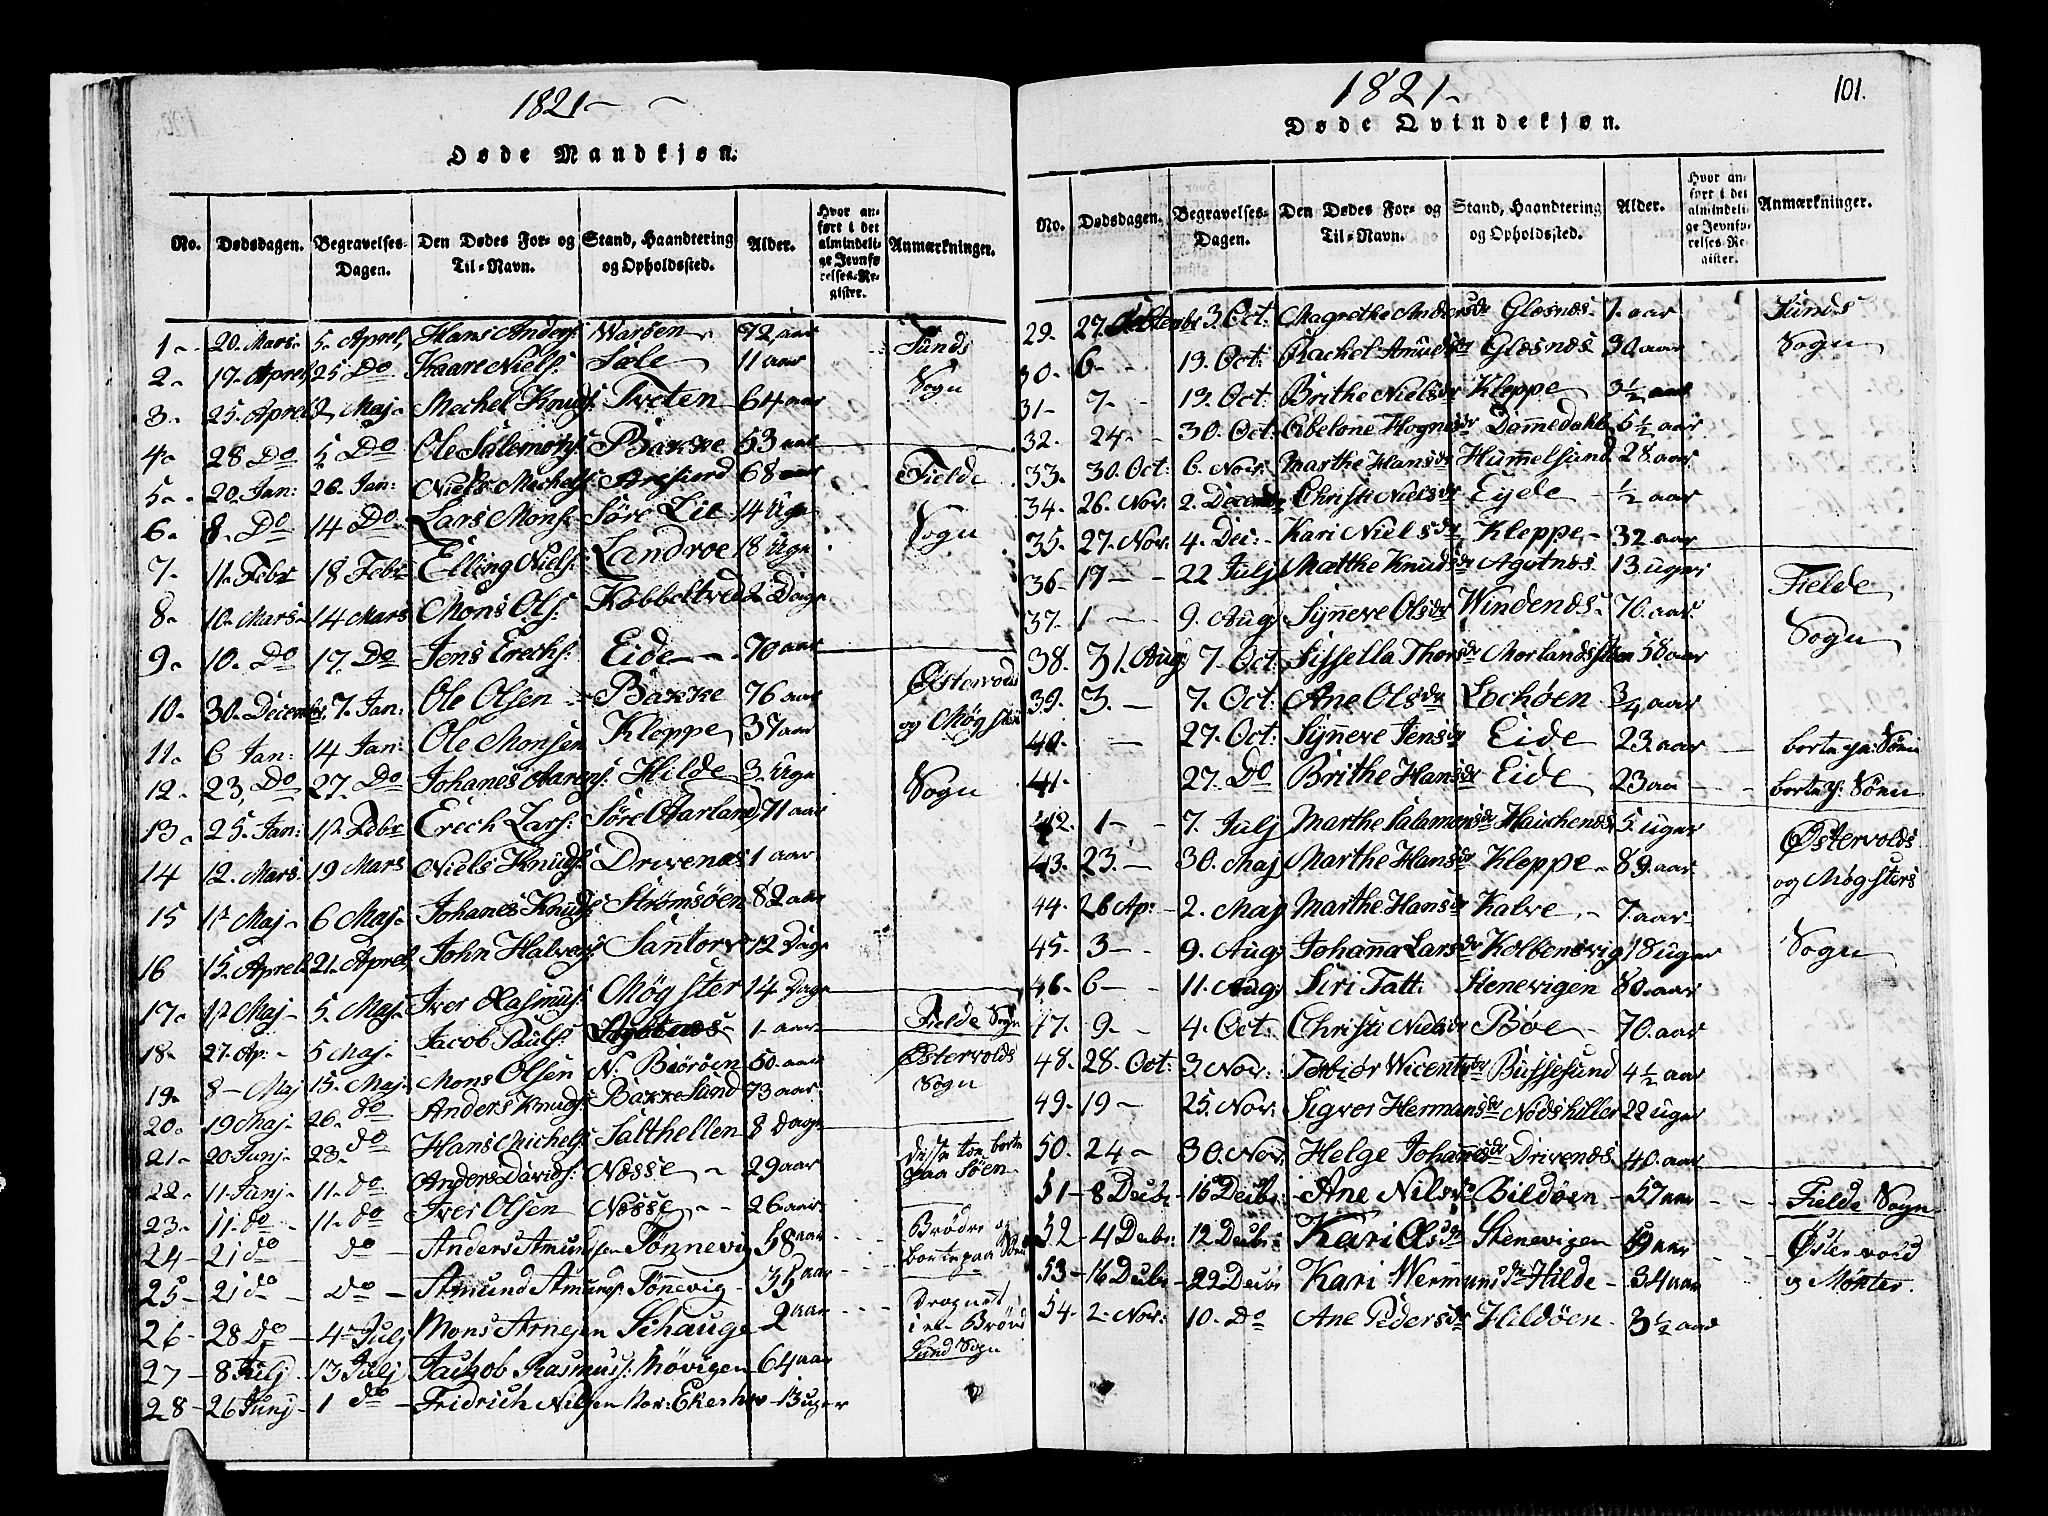 1821
Døde Mandkjøn.
No. Dødsdagen. Begravelses-Dagen. Den Dødes For- og Til-Navn. Stand, Haandtering og Opholdssted. Alder. Hvor anført i det almindelige Jevnførelses-Register. Anmærkninger.
1 20. Mars 5. Aprel, Hans Anders: Warøen 72 aar Sunds
2 17. Aprel, 25 Do Kaare Niels: Sæle 11 aar Sogn
3 25. Aprel 2 Maj Mechel Knuds: Tveten 64 aar
4 28 Do 5 Do Ole Salemons: Bakke 53 aar
5 20. Jan: 26. Jan: Niels Mechels: 68 aar Fielde
6 8. Do 14 Do Lars Mons: Søre Lie 14 Uge Sogn
7 11. Febr 18 Febr Elling Niels: Landroe 18 Uge
8 10. Mars 14 Mars Mons Ols: Kobbeltved 2 Dage
9 10. Do 17. Do Jens Erechs: Eide 70 aar
10 30. Decembr, 7. Jan: Ole Olsen Bakke 76 aar Østervolds
11 6 Jan: 14 Jan: Ole Monsen Kleppe 37 aar og Møgster
12 23. Do 27. Do Johanes Aarens: Hilde 3 Uge Sogn
13 25. Jan: 1st Febr Erech Lars: Søre Aarland 71 aar
14 12. Mars. 19 Mars Niels Knuds: Drivenæs 1 aar
15 1st Maj 6 Maj Johanes Knuds: Strømsøen 82 aar
16 15. Aprel 21. Aprel, John Halvars: Santorv 12 Dage
17 1st Maj 5. Maj. Iver Rasmus: Møgster 14 Dage
18 27. Ap: 5 Maj Jacob Pauls: 1 aar Fielde Sogn
19 8 Maj 15. Maj Mons Olsen N: Biørøen 50. aar Østervolds
20 19 Maj 26. do Anders Knuds: Bakkesund 73 aar Sogn
21 20 Junj 23. do Hans Michels: Salthellen 8 Dage
22 11 Junj 11. do Anders Davids: Næsse 29 aar disse toe borte paa Søen
23 11. do 11. do Iver Olsen Næsse 26 aar
24 21 do do Anders Amundsen Tønnevig 58 aar Brødre og borte paa
25 21 do do Amund Amunds: Tönevig 35 aar
26 28 Do 4 Julj Mons Arnesen Schauge 2 aar Drognet i en Brønd
27 8 Julj 13 Julj Jackob Rasmus: Møvigen 64 aar Sund Sogn
28 26 Junj 1 do Fridrich Nilsen Nor: Ekerhov 13 uger
1821
101.
Døde Qvindekjøn.
No. Dødsdagen. Begravelses-Dagen. Den Dødes For- og Til-Navn. Stand, Haandtering og Opholdssted. Alder. Hvor anført i det almindelige Jevnførelses-Register. Anmærkninger.
29. 27. 3. Oct: Magrethe Andersdr Glæsnæs 1. aar Sunds
30 6 13. Oct: Rachel Amudsdr Glæsnæs 30 aar Sogn
31 7 13. Oct: Brithe Nielsdr Kleppe 3½ aar
32. 24 30. Oct: Abelone Hognesdr Dammedahl 5½ aar
33. 30. Oct: 6. Nov: Marthe Hansdr Hummelsund 28. aar
34. 26. Nov. 2. Decembr Christi Nielsdr Eyde ½ aar
35. 27. Nov. 4. Dec: Kari Nielsdr Kleppe 32 aar
36 17 22 Julj Mætthe Knudsdr Agotnes 13. uger Fielde
37. 1 9. Aug Synneve Olsdr Windenæs 70. aar. Sogn
38. 31. Aug: 7. Oct: Sissella Thorsdr 58 aar
39. 3. 7. Oct: Ane Olsdr Lochøen ¾ aar
40. 27. Oct: Synneve Jensdr Eide 23. aar
41. 27. Do Brithe Hansdr Eide 23 aar
42. 1 7. Julj Marthe Salamonsdr 5. uger Østervolds
43. 23. 30. Maj Marthe Hansdr Kleppe 89. aar og Møgsters
44. 26 Ap: 2. Maj Marthe Hansdr Kalve 7. aar Sogn
45. 3 9. Aug Johanna Larsdr Kolbensvig 18 uger
46. 6 11. Aug: Siri Tatt: Stenevigen 80. aar
47. 9 4. Oct: Christi Nielsdr Bøe 70. aar
48. 28. Oct: 3 Nov: Torbiør Wicentsdr Bussesund 4½ aar
49. 19 25. Nov: Sigvor Hermansdr Nodshiller 22 uger
50. 24 30 Nov. Helge Johannesdr Drivenæs 40. aar
51 8 Decbr 16 Decbr Ane Nilsdr Bildøen 57 aar Fielde Sogn
52 4 Decbr: 12 Decbr: Kari Olsdr Stenevigen aar Østervold
53 16 Decbr 22 Decbr Kari Wermundsdr Hilde 34 aar og Møkster.
54. 2 Nov: 10. Do Ane Pedersdr Hildøen 3½ aar